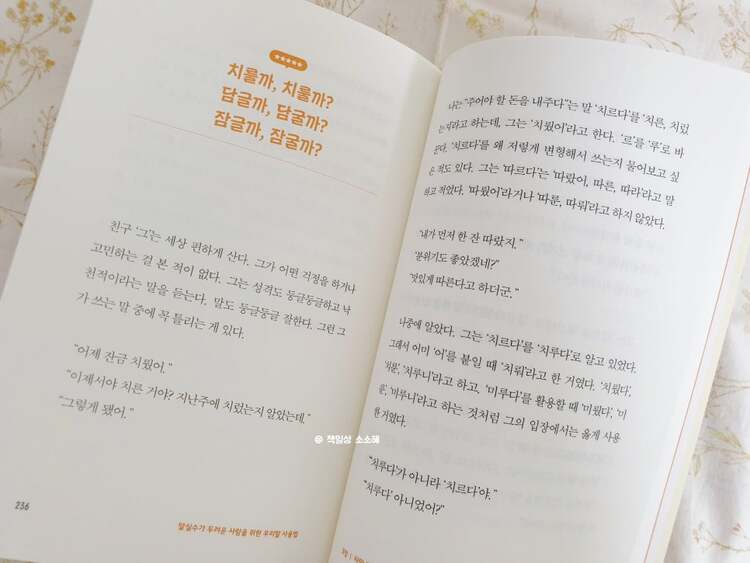 치룰까, 치룰까?
담글까, 담굴까?
잠글까, 잠굴까?
친구 '그'는 세상 편하게 산다. 그가 어떤 걱정을 하거나
고민하는 걸 본 적이 없다. 그는 성격도 둥글둥글하고 낙
천적이라는 말을 듣는다. 말도 둥글둥글 잘한다. 그런 그
가 쓰는 말 중에 꼭 틀리는 게 있다.
"어제 잔금 치뤘어."
"이제서야 치른 거야? 지난주에 치렀는지 알았는데."
"그렇게 됐어."
236
말실수가 두려운 사람을 위한 우리말 사용법
나는 "주어야 할 돈을 내주다"는 말 '치르다'를 '치른, 치렀
는지'라고 하는데, 그는 '치뤘어'라고 한다. '르'를 '루'로 바
꾼다. '치르다'를 왜 저렇게 변형해서 쓰는지 물어보고 싶
은 적도 있다. 그는 '따르다'는 '따랐어, 따른, 따라'라고 말
하고 적었다. '따뤘어'라거나 '따룬, 따뤄'라고 하지 않았다.
"내가 먼저 한 잔 따랐지."
"분위기도 좋았겠네?"
"맛있게 따른다고 하더군."
나중에 알았다. 그는 '치르다'를 '치루다'로 알고 있었다.
그래서 어미 '어'를 붙일 때 '치뤄'라고 한 거였다. '치뤘다',
'치룬', '치루니'라고 하고, '미루다'를 활용할 때 '미뤘다', '미
룬', '미루니'라고 하는 것처럼 그의 입장에서는 옳게 사용
한 거였다.
"'치루다'가 아니라 '치르다'야."
"'치루다' 아니었어?"
@ 책일상 소소해